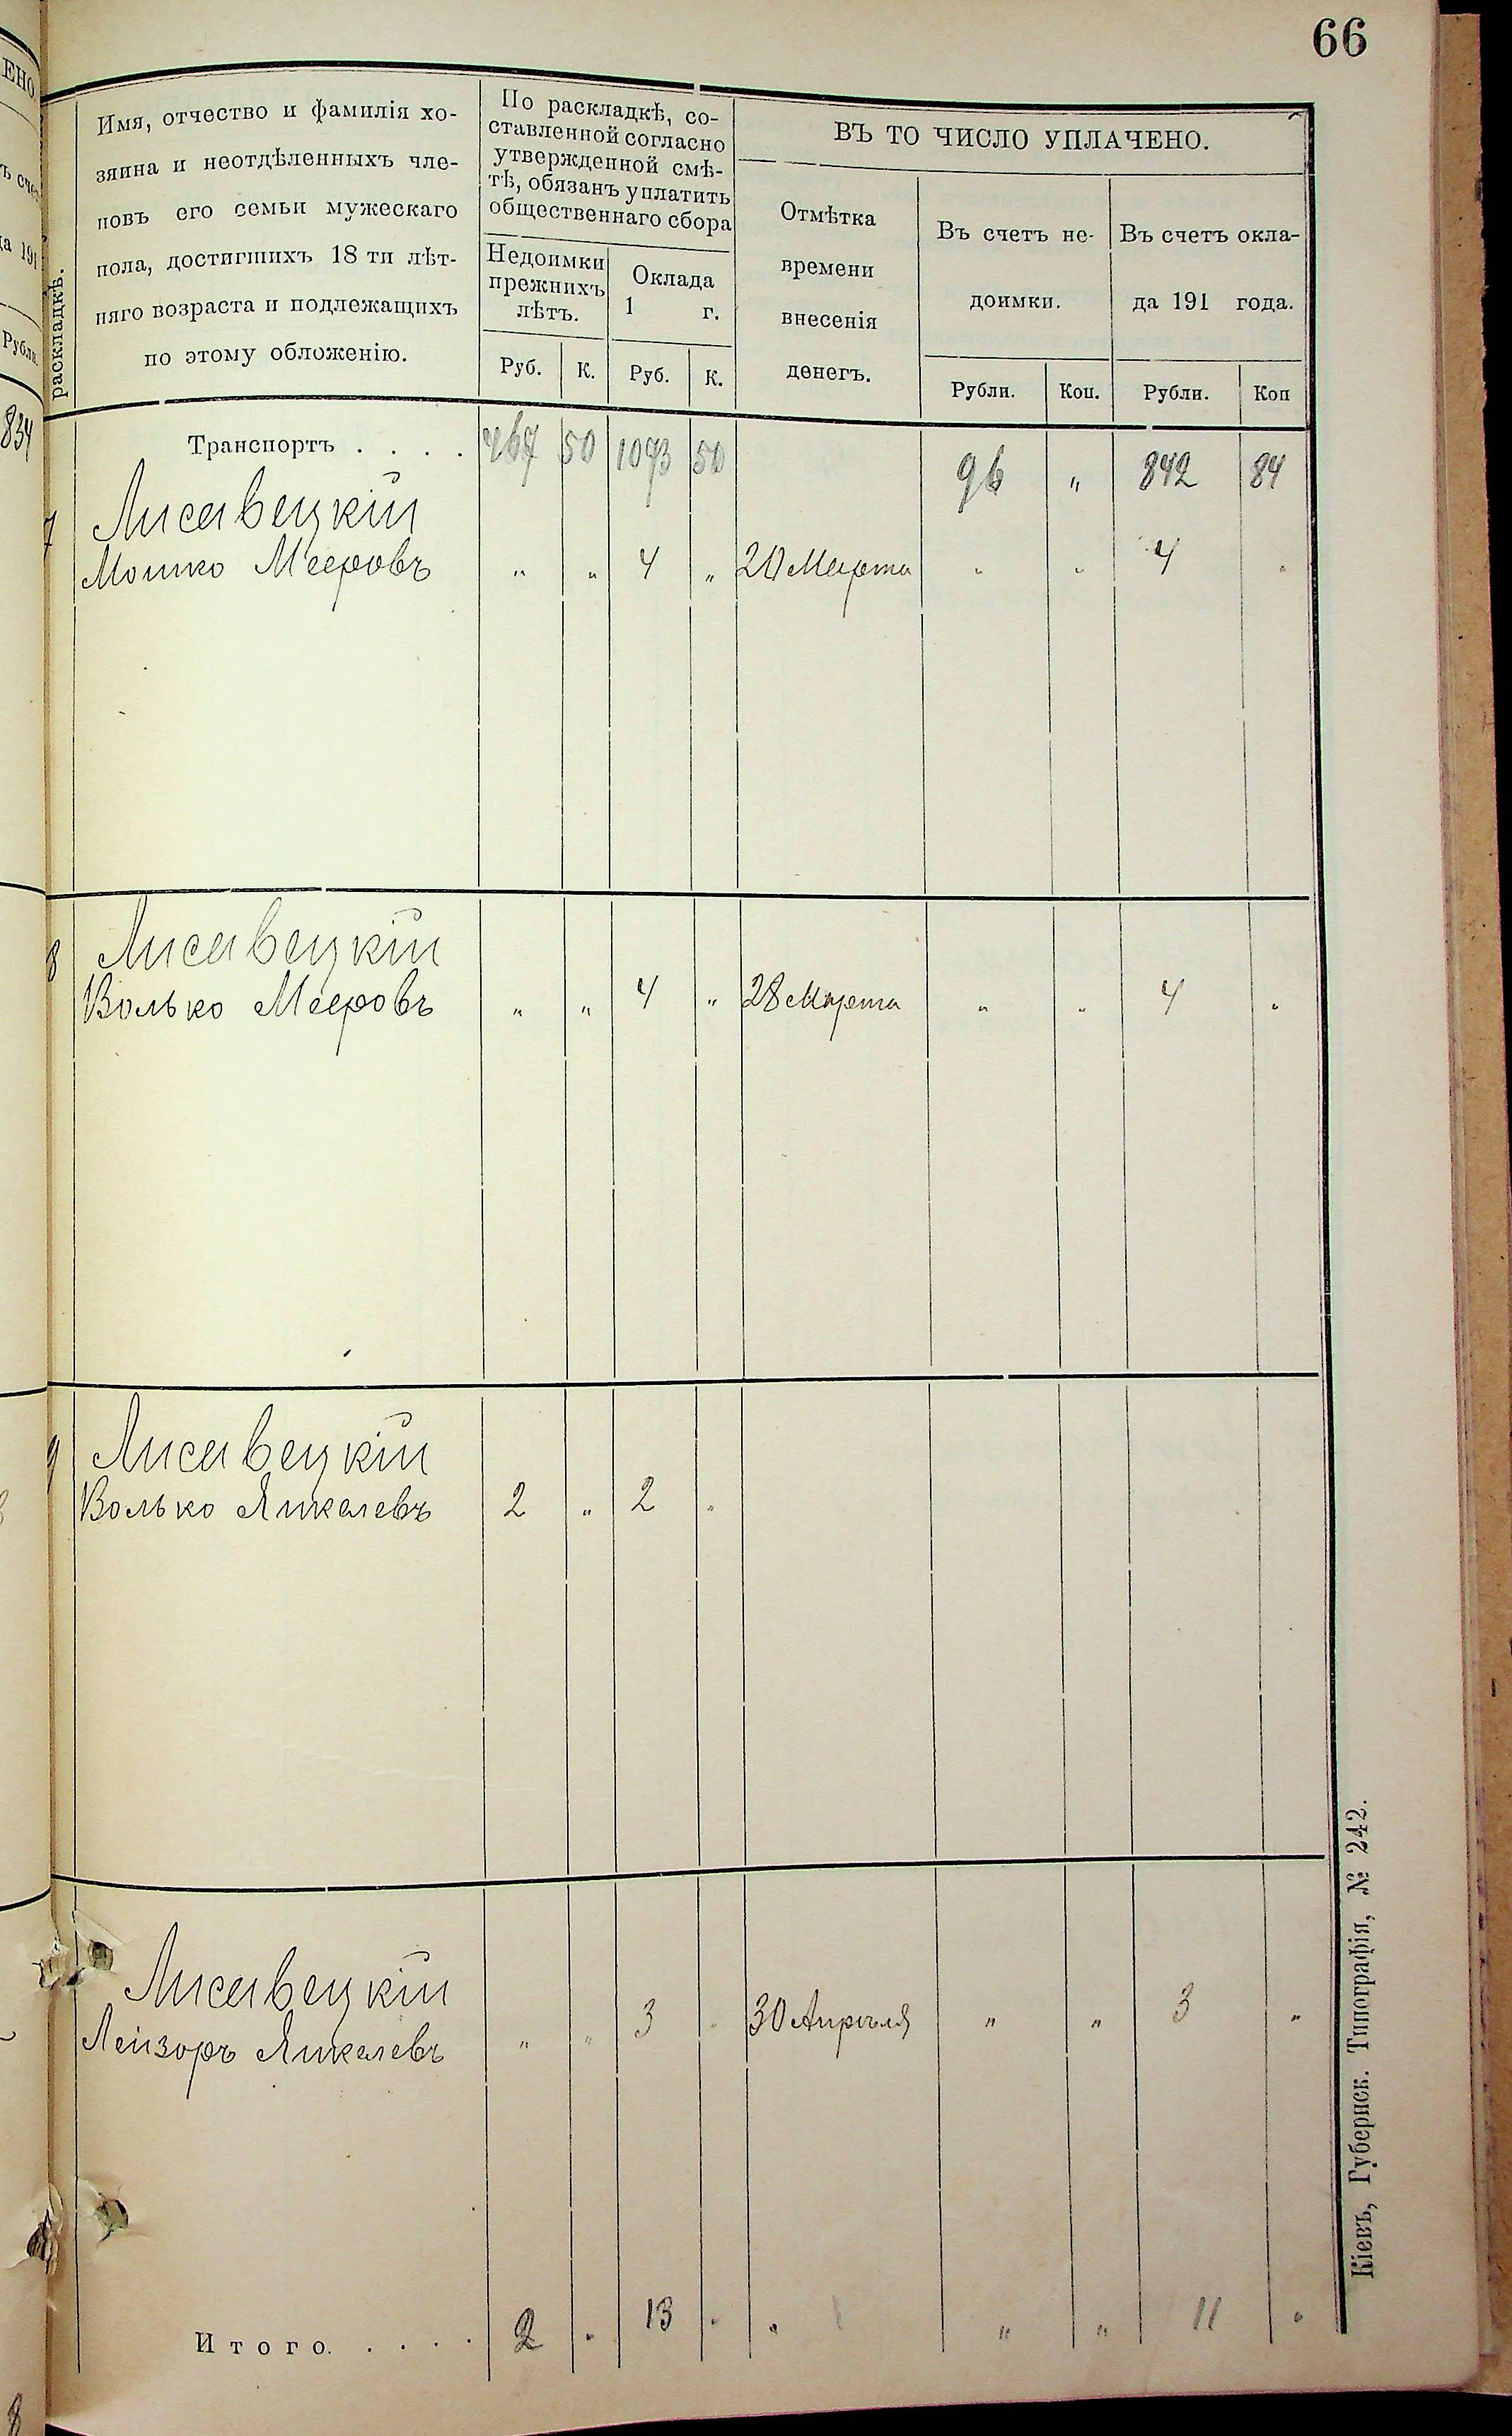 66
раскладкѣ.
Имя, отчество и фамилія хо-
зяина и неотдѣленныхъ чле-
новъ его семьи мужескаго
пола, достигшихъ 18 ти лѣт-
няго возраста и подлежащихъ
по этому обложенію.
По раскладкѣ, со-
ставленной согласно
утвержденной смѣ-
тѣ, обязанъ уплатить
общественнаго сбора
Недоимки
прежнихъ
лѣтъ.
Оклада
1 г.
Руб. К. Руб. К.
ВЪ ТО ЧИСЛО УПЛАЧЕНО.
Отмѣтка
времени
внесенія
денегъ.
Въ счетъ не-
доимки.
Въ счетъ окла-
да 191 года.
Рубли. Коп. Рубли. Коп
Транспортъ . . . . 50 1073 50 96 " 842 84
7 Лисавецкій
Мошко Мееровъ " " 4 " 20 Марта " " 4 "
8 Лисавецкій
Волько Мееровъ " " 4 " 28 Марта " " 4 "
9 Лисавецкій
Волько Янкелевъ 2 " 2 "
Лисавецкій
Лейзоръ Янкелевъ " " 3 " 30 Апрѣля " " 3 "
Итого. . . . . 2 " 13 " " " " 11 "
Кіевъ, Губернск. Типографія, № 242.